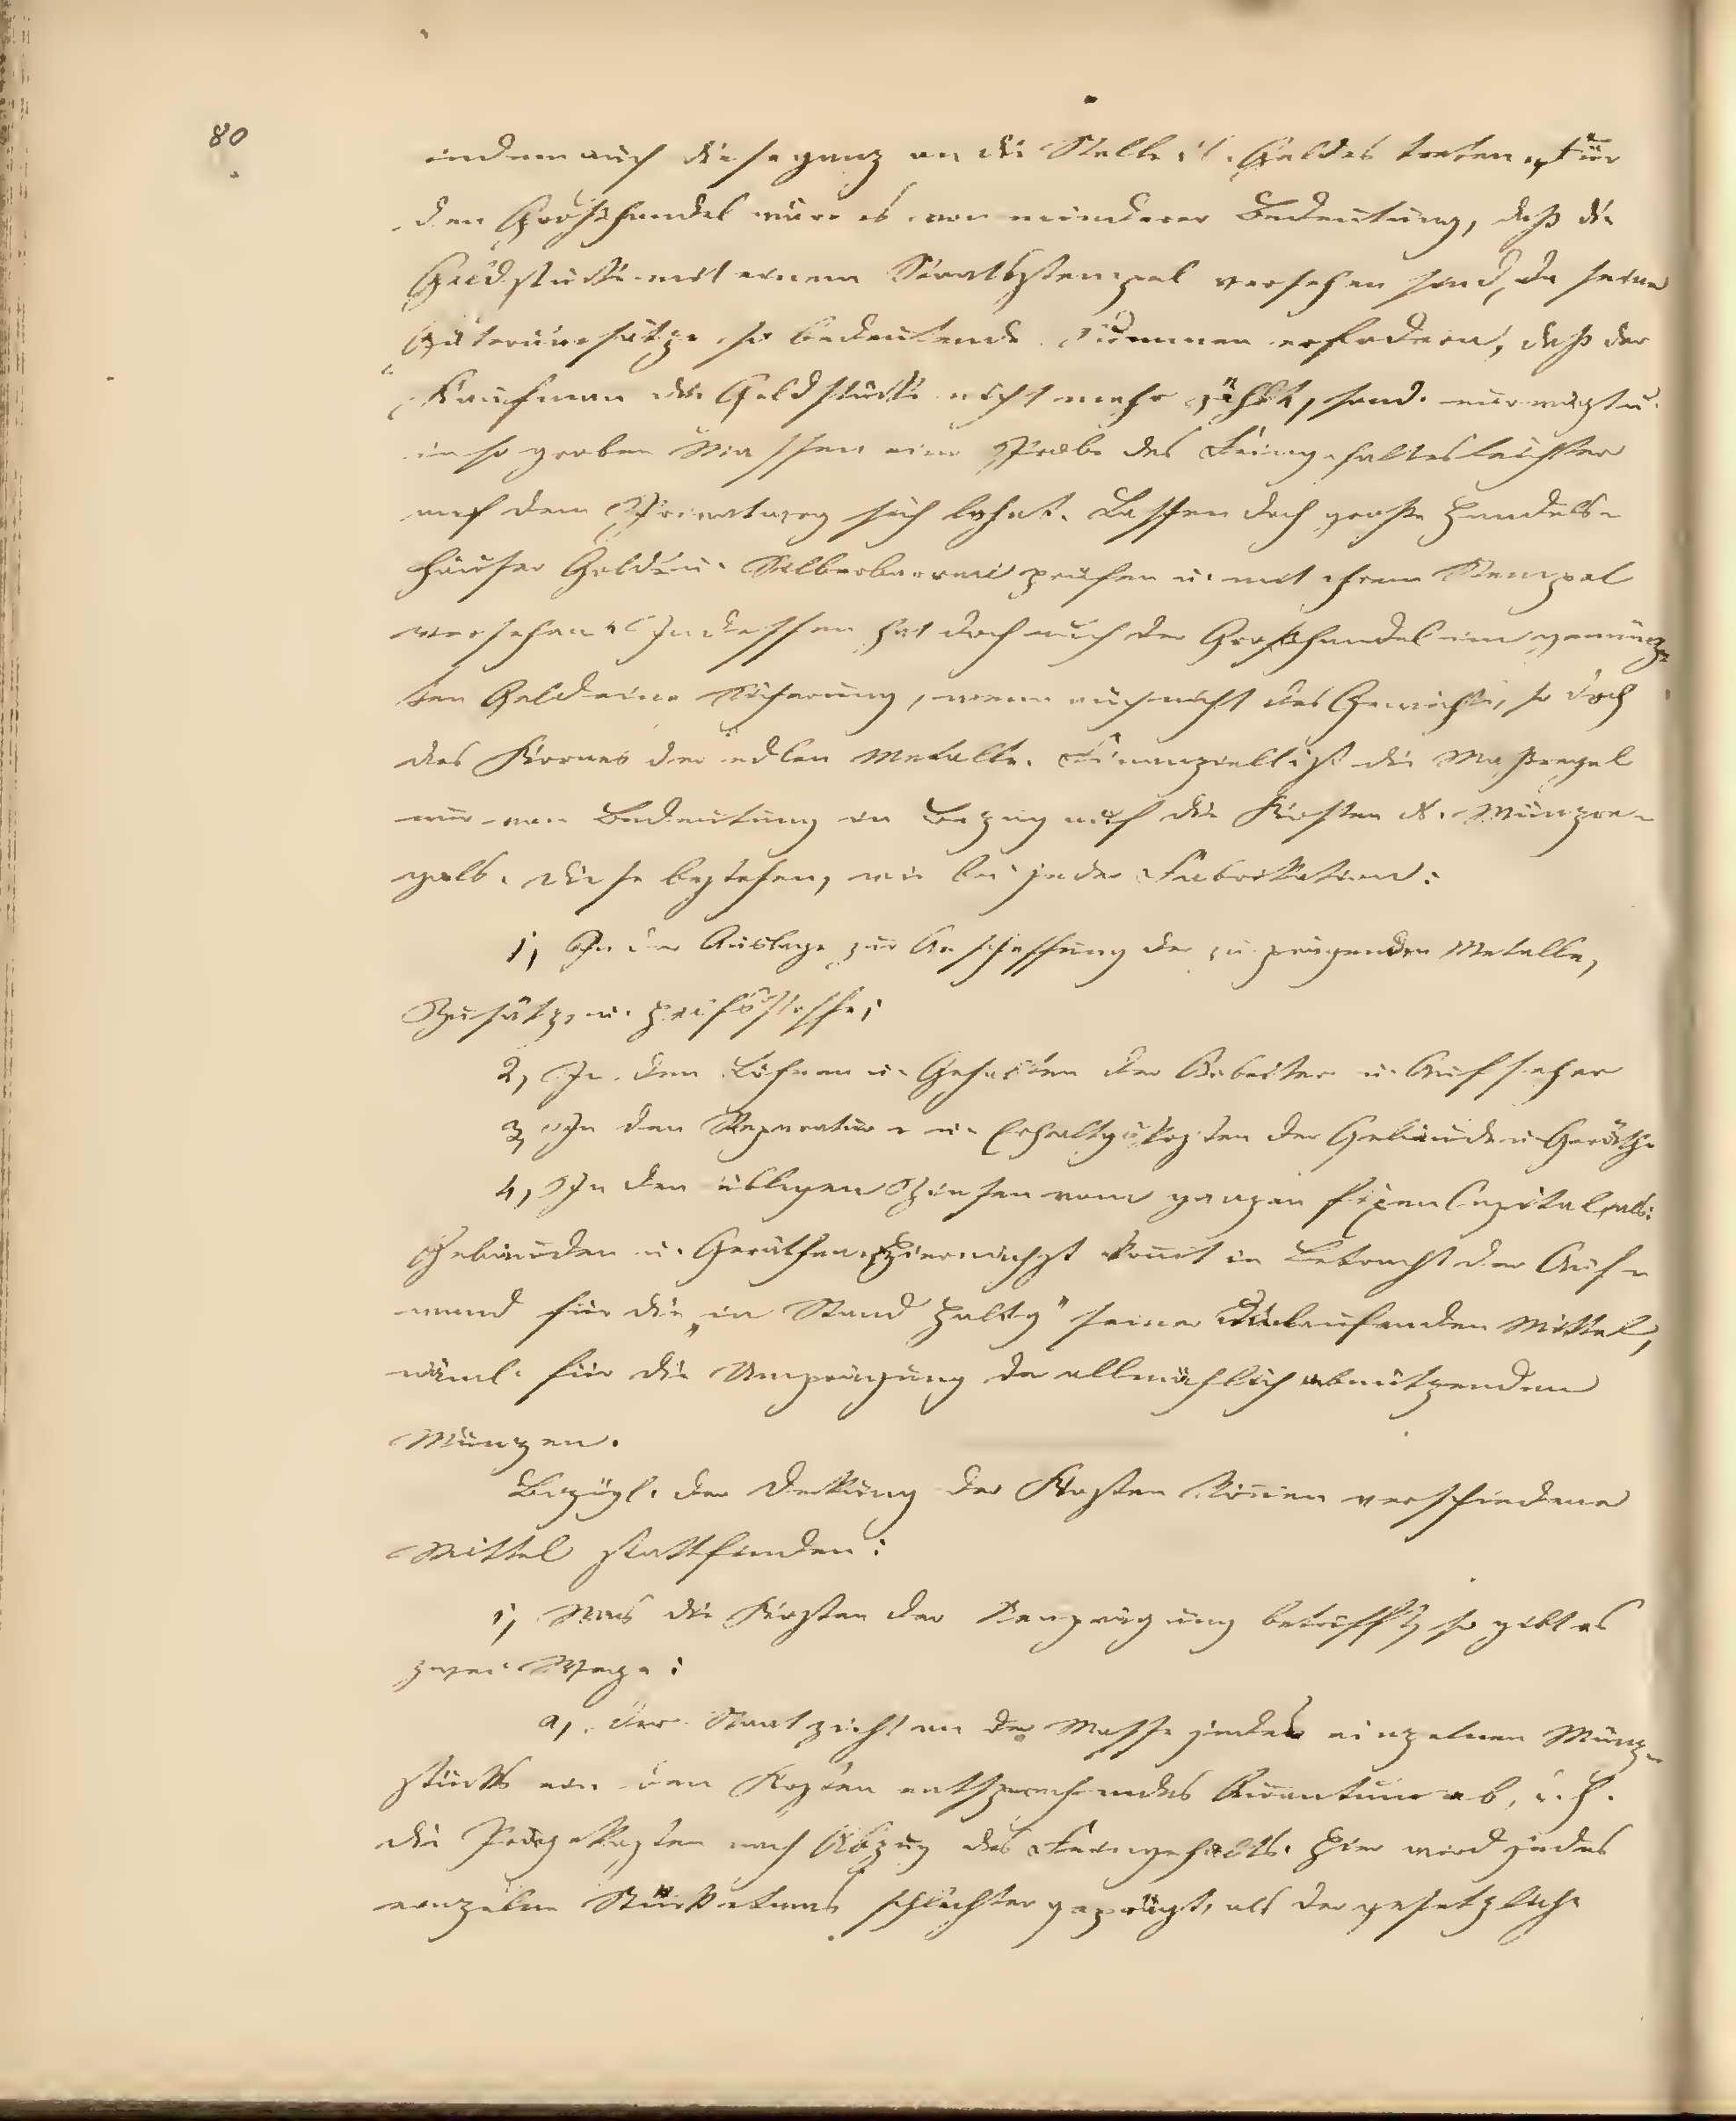 80
indem auch diese ganz an die Stelle d. Geldes treten. Für
den Großhandel wäre es von minderer Bedeutung, daß die
Geldstücke mit einem Staatsstempel versehen sind, da seine
Güterumsätze so bedeutende Summen erfodern, daß der
Kaufman die Geldstücke nicht mehr zählt, sond. nur wägt u.
in so groben Massen eine Probe des Feingehaltes leichter
auf dem Privatweg sich lohnt. Lassen doch große Handels-
häuser Gold- u. Silberbarren prüfen u. mit ihrem Stempel
versehen. Indessen hat doch auch der Großhandel im gemünz-
ten Geld eine Sicherung, wenn auch nicht des Gewichts, so doch
des Kornes der edlen Metalle. Finanziell ist die Maßregel
nur von Bedeutung in Bezug auf die Kosten d. Münzre-
gals. Diese bestehen, wie bei jeder Fabrikation:
1, In der Auslage zur Anschaffung der zu prägenden Metalle,
Zusätze u. Hilfsstoffe;
2, In den Löhnen u. Gehalten der Arbeiter u. Aufseher
3, In den Reparatur- u. Erhaltgskosten der Gebäude u. Geräthe
4, In den üblichen Zinsen vom ganzen fixen Capital, als:
Gebäuden u. Geräthen. Hiernächst komt in Betracht der Auf-
wand für die „in Stand Haltg" seiner umlaufenden Mittel,
näml. für die Umprägung der allmählich abnützenden
Münzen.
Bezügl. der Deckung der Kosten können verschiedene
Mittel stattfinden:
1, Was die Kosten der Neuprägung betrifft, so gibt es
zwei Wege:
a, der Staat zieht an der Masse jedes einzelnen Münz-
stücks ein den Kosten entsprechendes Quantum ab, d. h.
die Prägekosten nach Abzug des Feingehalts. Hier wird jedes
einzelne Stück etwas schlechter geprägt, als der gesetzliche